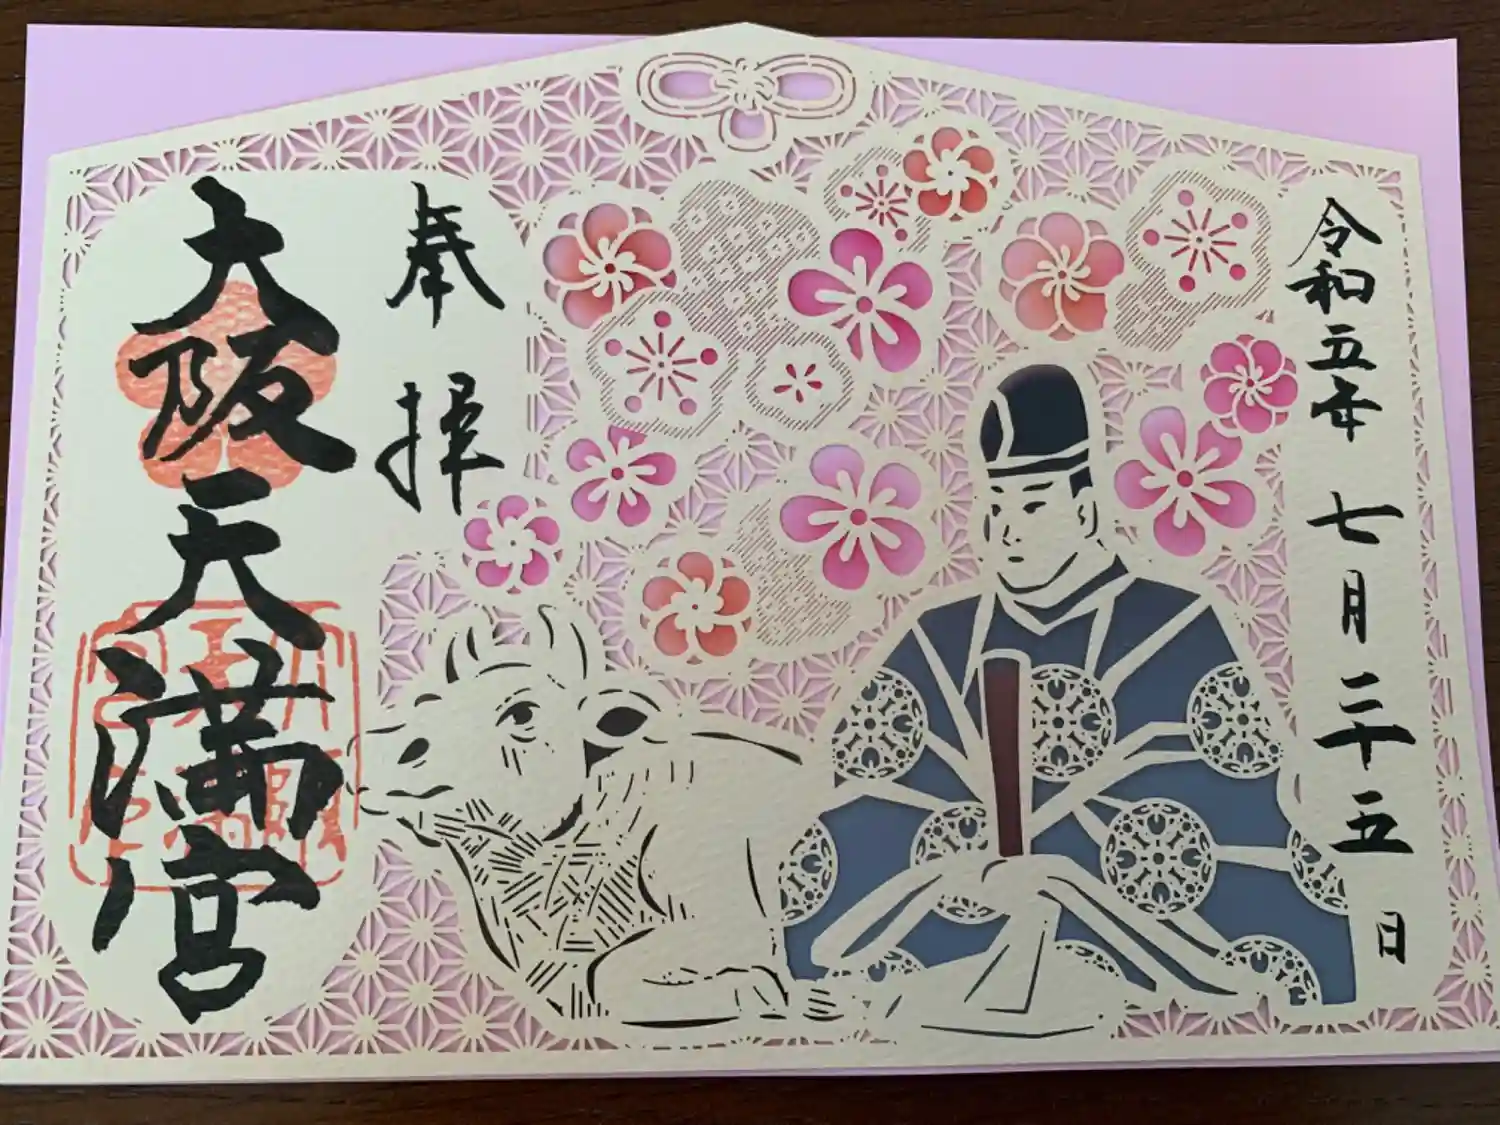 令和五年七月二十五日
奉拝
大阪天満宮